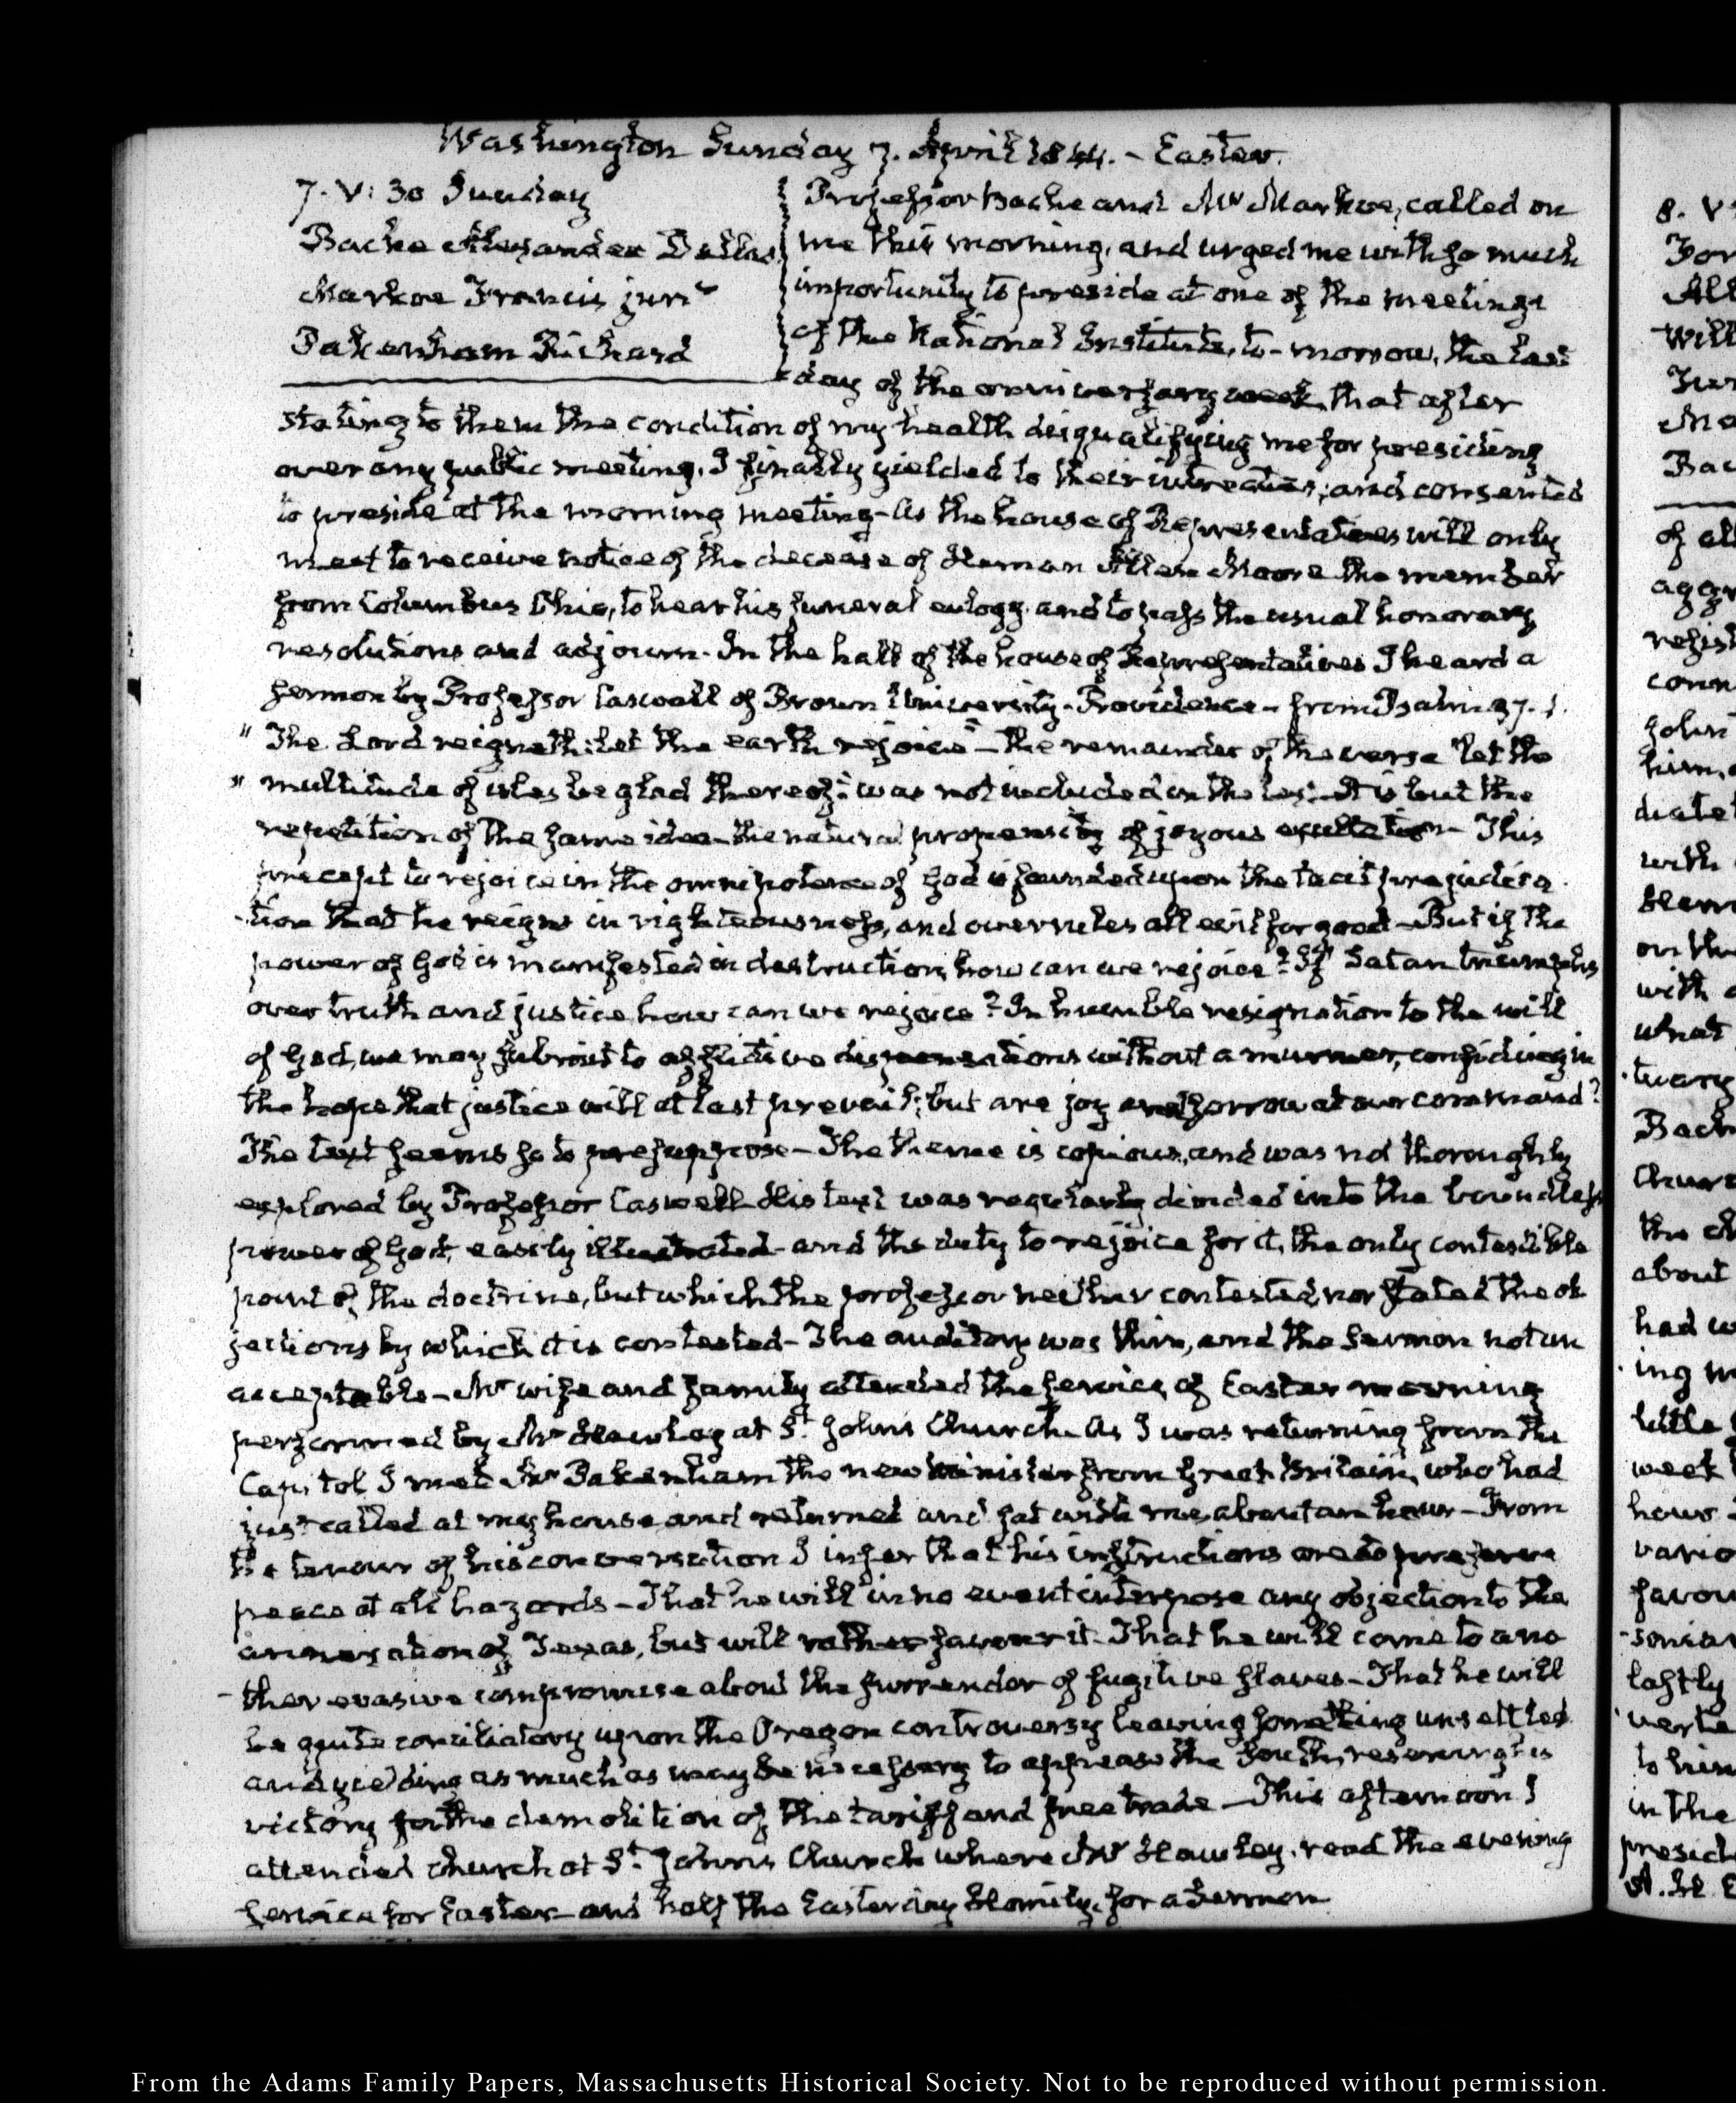 Washington Sunday 7. April 1844. - Easter.
7. V: 30 Sunday
Bache Alexander Dallas
Markoe Francis junr
Pakenham Richard
Professor Bache and Mr Markoe, called on
me this morning, and urged me with so much
importunity to preside at one of the meetings
of the National Institute, to-morrow, the last
day of the anniversary week, that after
stating to them the condition of my health disqualifying me for presiding
over any public meeting, I finally yielded to their intreaties, and consented
to preside at the morning meeting - As the house of Representatives will only
meet to receive notice of the decease of Heman Allen Moore the member
from Columbus Ohio, to hear his funeral eulogy and to pass the usual honorary
resolutions and adjourn. In the hall of the house of Representatives I heard a
sermon by Professor Caswell of Brown University - Providence - from Psalm 97. 1.
" The Lord reigneth: let the earth rejoice" - the remainder of the verse "let the
" multitude of isles be glad thereof:" was not included in the text. It is but the
repetition of the same idea - the natural propensity of joyous exultation - This
precept to rejoice in the omnipotence of God is founded upon the tacit prejudica
-tion that he reigns in righteousness, and overrules all evil for good - But if the
power of God is manifested in destruction, how can we rejoice? If Satan triumphs
over truth and justice, how can we rejoice? In humble resignation to the will
of God, we may submit to afflictive dispensations without a murmur, confiding in
the hope that justice will at last prevail; but are joy and sorrow at our command?
The text seems so to presuppose - The theme is copious, and was not thoroughly
explored by Professor Caswell - His text was regularly divided into the boundless
power of God, easily illustrated - and the duty to rejoice for it, the only contestible
point of the doctrine, but which the professor neither contested, nor stated the ob
jections by which it is contested - The auditory was thin, and the Sermon not un
acceptable - My wife and family attended the service of Easter morning
performed by Mr Hawley at St. John's Church. As I was returning from the
Capitol I met Mr Pakenham the new minister from Great Britain, who had
just called at my house and returned and sat with me about an hour - From
the tenour of his conversation I infer that his instructions are to preserve
peace at all hazards - That he will in no event interpose any objection to the
annexation of Texas, but will rather favour it. That he will come to ano
-ther evasive compromise about the surrender of fugitive slaves - That he will
be quite conciliatory upon the Oregon controversy leaving something unsettled
and yielding as much as may be necessary to appease the South, reserving his
victory for the demolition of the tariff and free trade - This afternoon I
attended church at St. John's Church where Mr Hawley read the evening
service for Easter and half the Easter day Homily, for a Sermon.
8. V
For
All
Will
Jun
Ma
Bac
of all
aggr
regis
conn
John
him,
diate
with
on th
with
what
Bach
Church
the ch
about
had w
ing m
little
week
hour
vario
favou
lastly
to him
in the
presid
From the Adams Family Papers, Massachusetts Historical Society. Not to be reproduced without permission.